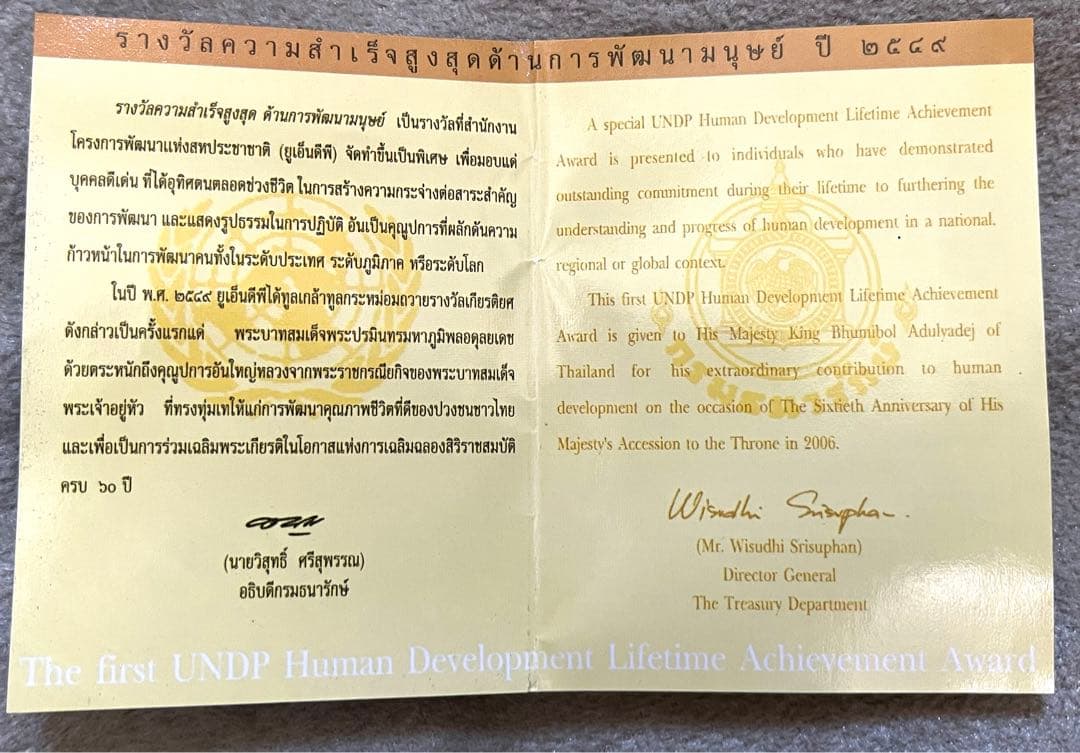 รางวัลความสำเร็จสูงสุดด้านการพัฒนามนุษย์ ปี ๒๕๔๙
รางวัลความสำเร็จสูงสุด ด้านการพัฒนามนุษย์ เป็นรางวัลที่สำนักงาน
โครงการพัฒนาแห่งสหประชาชาติ (ยูเอ็นดีพี) จัดทำขึ้นเป็นพิเศษ เพื่อมอบแด่
บุคคลดีเด่น ที่ได้อุทิศตนตลอดช่วงชีวิต ในการสร้างความกระจ่างต่อสาระสำคัญ
ของการพัฒนา และแสดงรูปธรรมในการปฏิบัติ อันเป็นคุณูปการที่ผลักดันความ
ก้าวหน้าในการพัฒนาคนทั้งในระดับประเทศ ระดับภูมิภาค หรือระดับโลก
ในปี พ.ศ. ๒๕๔๙ ยูเอ็นดีพีได้ทูลเกล้าทูลกระหม่อมถวายรางวัลเกียรติยศ
ดังกล่าวเป็นครั้งแรกแด่ พระบาทสมเด็จพระปรมินทรมหาภูมิพลอดุลยเดช
ด้วยตระหนักถึงคุณูปการอันใหญ่หลวงจากพระราชกรณียกิจของพระบาทสมเด็จ
พระเจ้าอยู่หัว ที่ทรงทุ่มเทให้แก่การพัฒนาคุณภาพชีวิตที่ดีของปวงชนชาวไทย
และเพื่อเป็นการร่วมเฉลิมพระเกียรติในโอกาสแห่งการเฉลิมฉลองสิริราชสมบัติ
ครบ ๖๐ ปี
(นายวิสุทธิ์ ศรีสุพรรณ)
อธิบดีกรมธนารักษ์
A special UNDP Human Development Lifetime Achievement
Award is presented to individuals who have demonstrated
outstanding commitment during their lifetime to furthering the
understanding and progress of human development in a national.
regional or global context.
This first UNDP Human Development Lifetime Achievement
Award is given to His Majesty King Bhumibol Adulyadej of
Thailand for his extraordinary contribution to human
development on the occasion of The Sixtieth Anniversary of His
Majesty's Accession to the Throne in 2006.
Wisudhi Srisuphan.
(Mr. Wisudhi Srisuphan)
Director General
The Treasury Department
กรมธนารักษ์
The first UNDP Human Development Lifetime Achievement Award